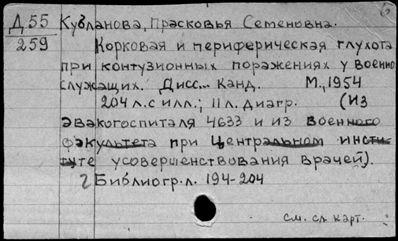 Д55 Кубланова, Прасковья Семеновна.
259 Корковая и периферическая глухота
при контузионных поражениях у военно
служащих. Дисс... Канд. М., 1954
204 л. с илл.; 11 л. диагр. (Из
эвакогоспиталя 4633 и из военного
факультета при Центральном инсти
туте усовершенствования врачей).
Библиогр. л. 194-204
См. сл. карт.